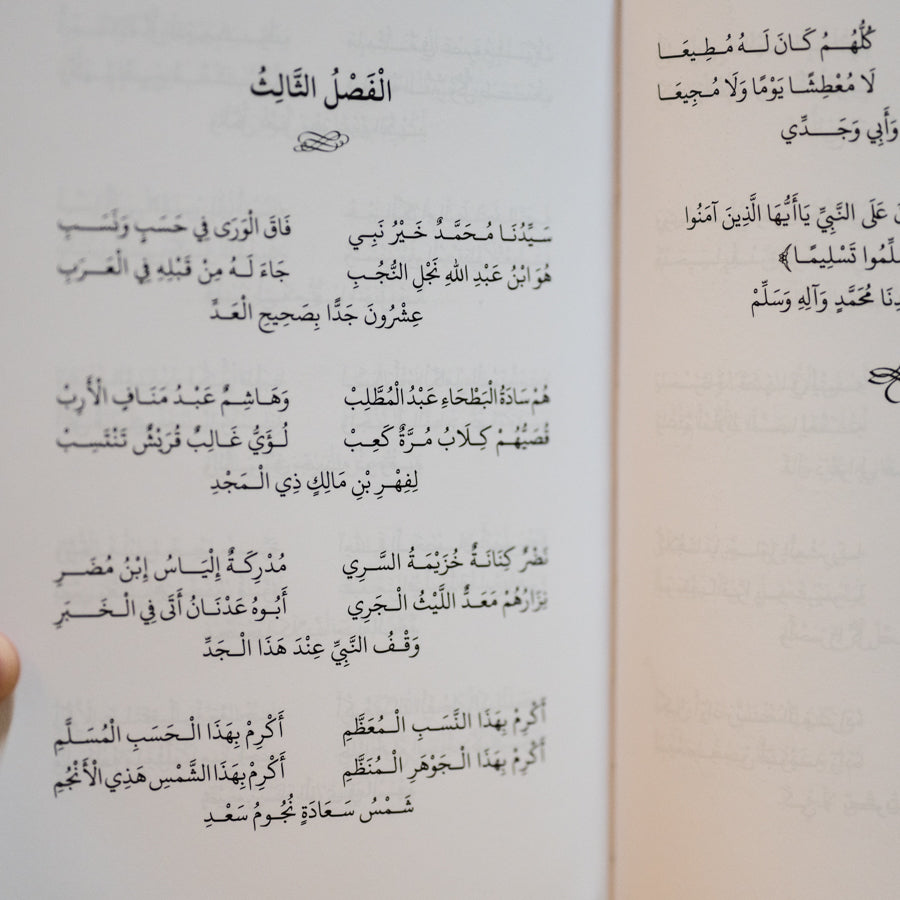 كُلُّهُمُ كَانَ لَهُ مُطِيعَا
لَا مُعْطِشًا يَوْمًا وَلَا مُجِيعَا
وَأَبِي وَجَدِّي
عَلَى النَّبِيِّ يَاأَيُّهَا الَّذِينَ آمَنُوا
تَسْلِيمًا﴾
مُحَمَّدٍ وَآلِهِ وَسَلِّمْ
الْفَصْلُ الثَّالِثُ
سَيِّدُنَا مُحَمَّدٌ خَيْرُ نَبِي فَاقَ الْوَرَى فِي حَسَبٍ وَنَسَبِ
هُوَ ابْنُ عَبْدِ اللهِ نَجْلِ النُّجُبِ جَاءَ لَهُ مِنْ قَبْلِهِ فِي الْعَرَبِ
عِشْرُونَ جَدًّا بِصَحِيحِ الْعَدِّ
هُمْ سَادَةُ الْبَطْحَاءِ عَبْدُ الْمُطَّلِبْ وَهَاشِمٌ عَبْدُ مَنَافِ الْأَرِبْ
قُصَيُّهُمْ كِلَابُ مُرَّةٌ كَعِبْ لُؤَيُّ غَالِبٌ قُرَيْشٌ تَنْتَسِبْ
لِفِهْرِ بْنِ مَالِكٍ ذِي الْمَجْدِ
نَضْرُ كِنَانَةٌ خُزَيْمَةُ السَّرِي مُدْرِكَةٌ إِلْيَاسُ إِبْنُ مُضَرِ
نِزَارُهُمْ مَعَدُّ اللَّيْثُ الْجَرِي أَبُوهُ عَدْنَانُ أَتَى فِي الْخَبَرِ
وَقْفُ النَّبِيِّ عِنْدَ هَذَا الْجَدِّ
أَكْرِمْ بِهَذَا النَّسَبِ الْمُعَظَّمِ أَكْرِمْ بِهَذَا الْحَسَبِ الْمُسَلَّمِ
أَكْرِمْ بِهَذَا الْجَوْهَرِ الْمُنَظَّمِ أَكْرِمْ بِهَذَا الشَّمْسِ هَذِي الْأَنْجُمِ
شَمْسُ سَعَادَةٍ نُجُومُ سَعْدِ